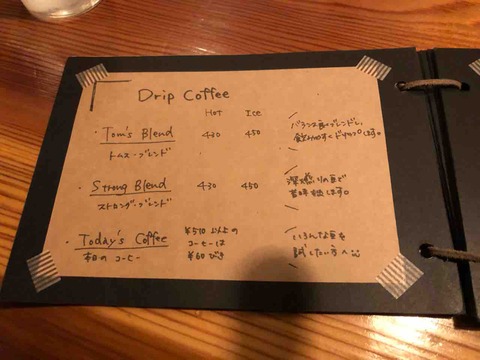 Drip Coffee
Hot Ice
・Tom's Blend 430 450
トムス・ブレンド
バランス良くブレンドし、
飲みやすくドリップします。
・Strong Blend 430 450
ストロング・ブレンド
深煎りの豆で
します。
・Today's Coffee
本日の コーヒー
¥510 以上の
コーヒーは
¥60 びき
いろんな豆を
試したい方へ